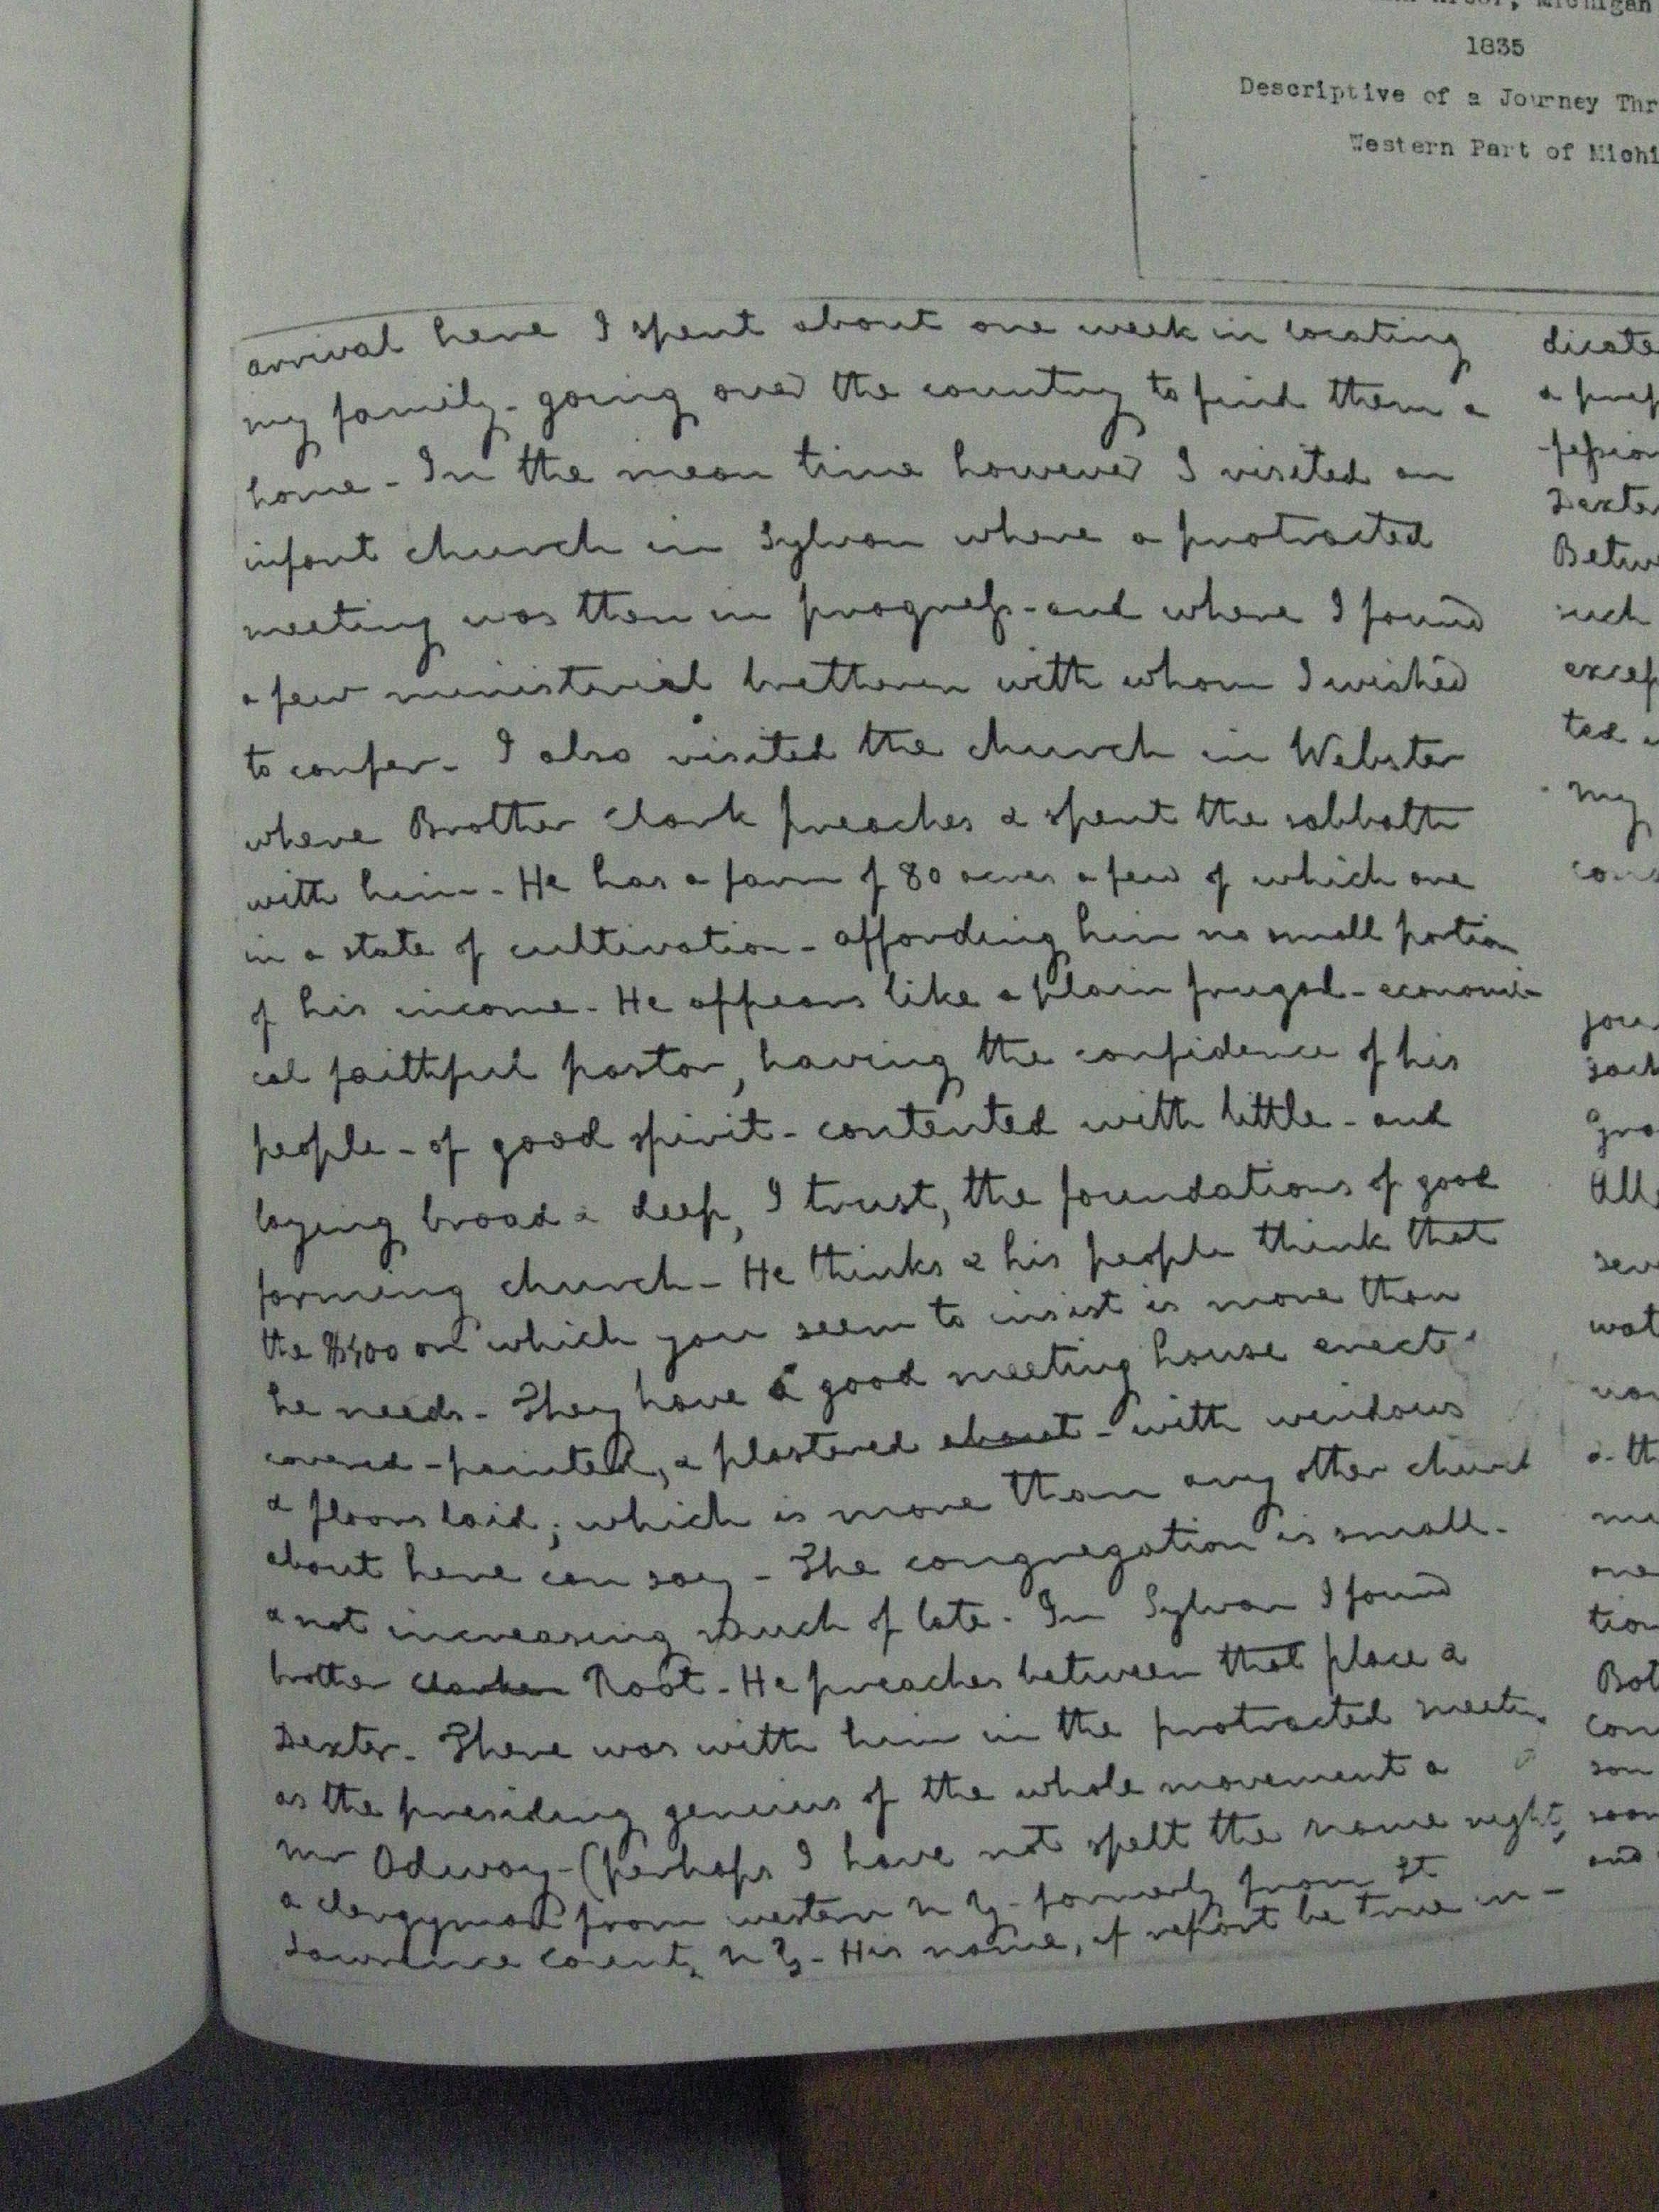 Michigan
1835
Descriptive of a Journey Thr
Western Part of Michi
arrival here I spent about one week in locating
my family - going over the country to find them a
home - In the mean time however I visited an
infant church in Sylvan where a protracted
meeting was then in progress - and where I found
a few ministerial brethern with whom I wished
to confer - I also visited the church in Webster
where Brother Clark preaches & spent the sabbath
with him - He has a farm of 80 acres a few of which are
in a state of cultivation - affording him no small portion
of his income - He appears like a plain frugal - economi-
cal faithful pastor, having the confidence of his
people - of good spirit - contented with little - and
laying broad & deep, I trust, the foundations of good
forming church - He thinks & his people think that
the $400 on which you seem to insist is more than
he needs - They have a good meeting house erect
covered - painted, & plastered about - with windows
& floors laid; which is more than any other church
about here can say - The congregation is small -
& not increasing much of late - In Sylvan I found
brother Root - He preaches between that place &
Dexter - There was with him in the protracted meetin
as the presiding genius of the whole movement a
Mr Odway - (perhaps I have not spelt the name right,
a clergyman from western N Y - formerly from St
Lawrence County N Y - His name, if report be true in -
dicate
a pref
fession
Dexter
Betw
such
excep
ted
my
cons
jou
sack
Gra
All
sev
wat
& th
one
tion
Bot
con
son
soon
and